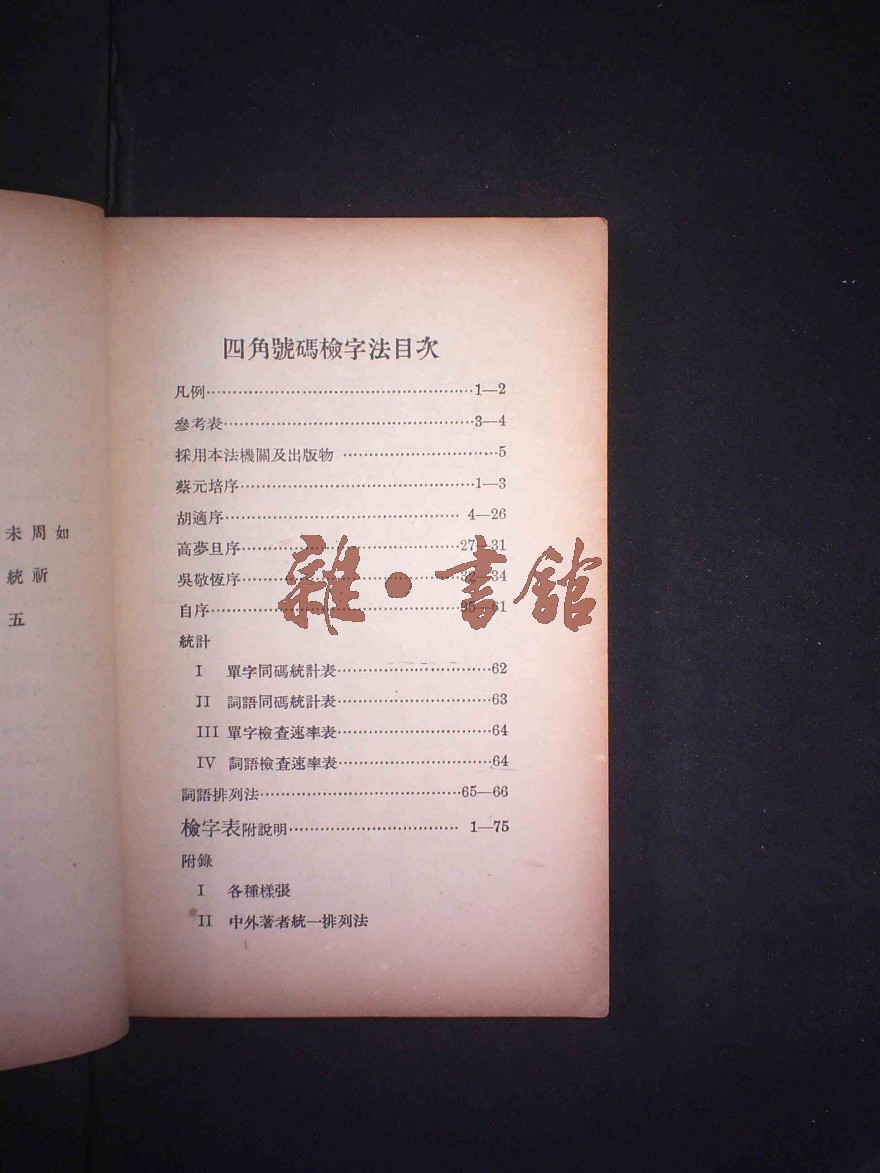 四角號碼檢字法目次
凡例……………………………………………1—2
參考表…………………………………………3—4
採用本法機關及出版物 …………………………5
蔡元培序………………………………………1—3
胡適序……………………………………… 4—26
高夢旦序……………………………………27—31
吳敬恆序……………………………………32—34
自序…………………………………………35—61
統計
I 單字同碼統計表…………………………62
II 詞語同碼統計表…………………………63
III 單字檢查速率表…………………………64
IV 詞語檢查速率表…………………………64
詞語排列法…………………………………65—66
檢字表附說明…………………………… 1—75
附錄
I 各種樣張
II 中外著者統一排列法
如
周祈
未統五
雜·書館